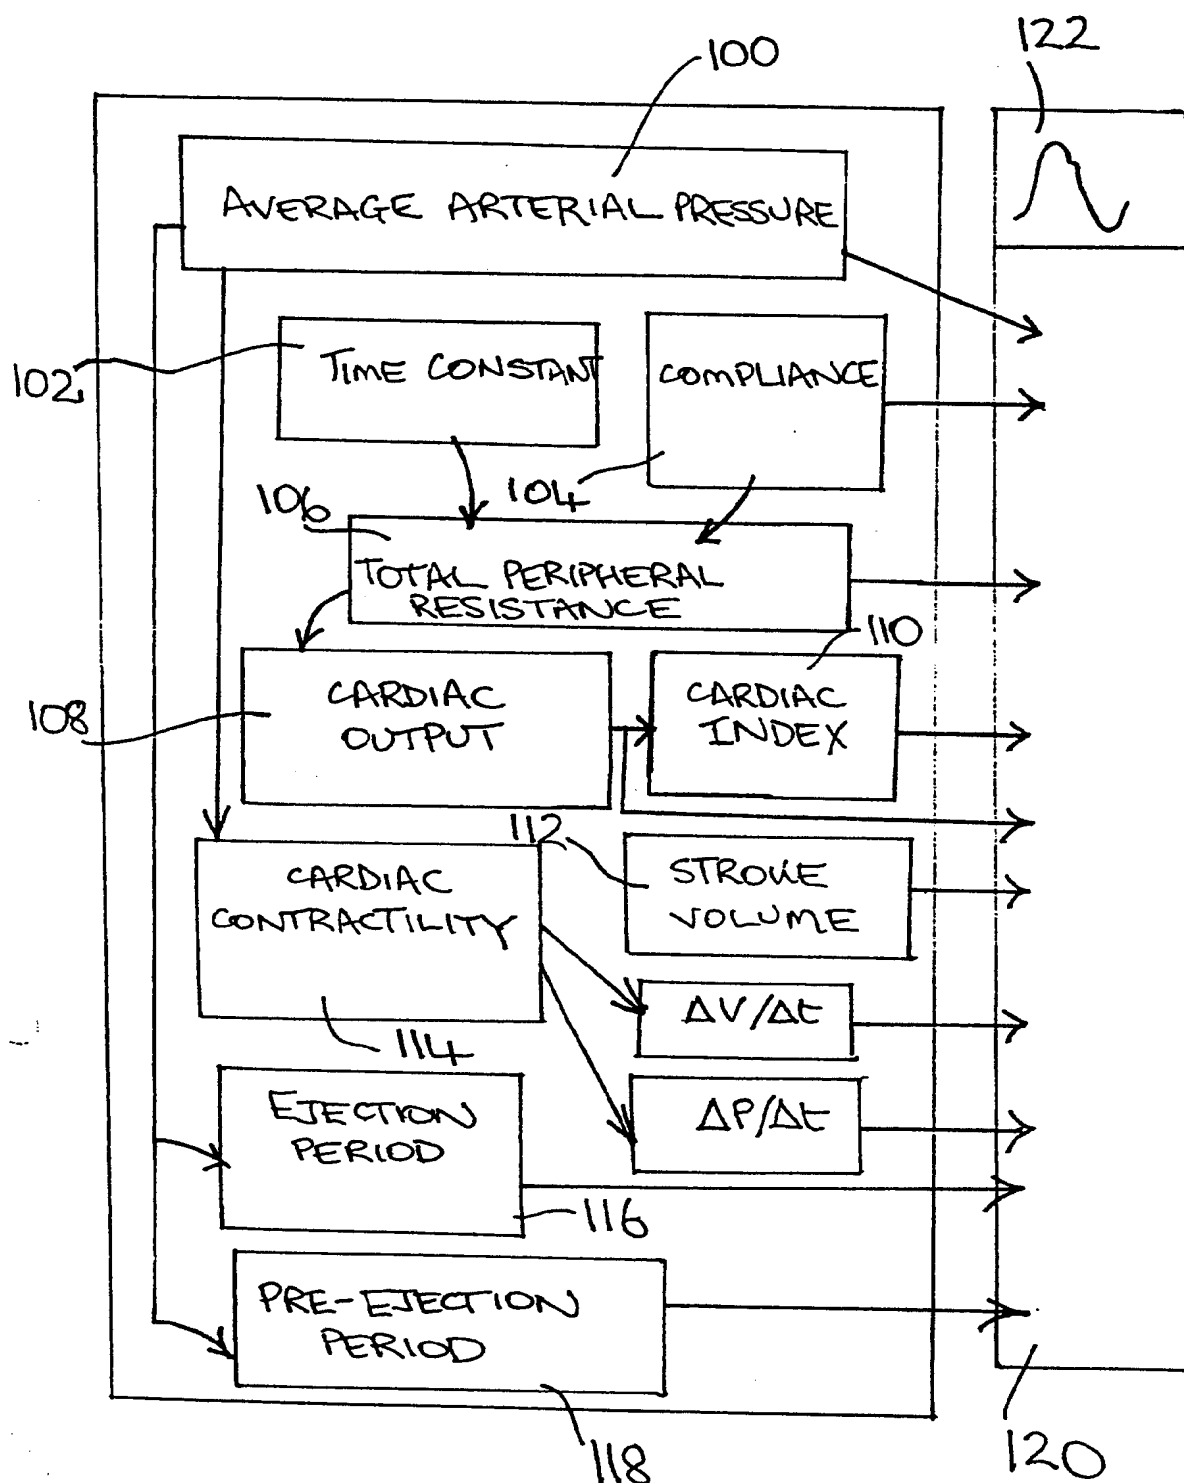 122
100
AVERAGE ARTERIAL PRESSURE
102
TIME CONSTANT
COMPLIANCE
104
106
TOTAL PERIPHERAL
RESISTANCE
110
108
CARDIAC
OUTPUT
CARDIAC
INDEX
112
STROKE
VOLUME
CARDIAC
CONTRACTILITY
114
ΔV/Δt
ΔP/Δt
EJECTION
PERIOD
116
PRE-EJECTION
PERIOD
118
120